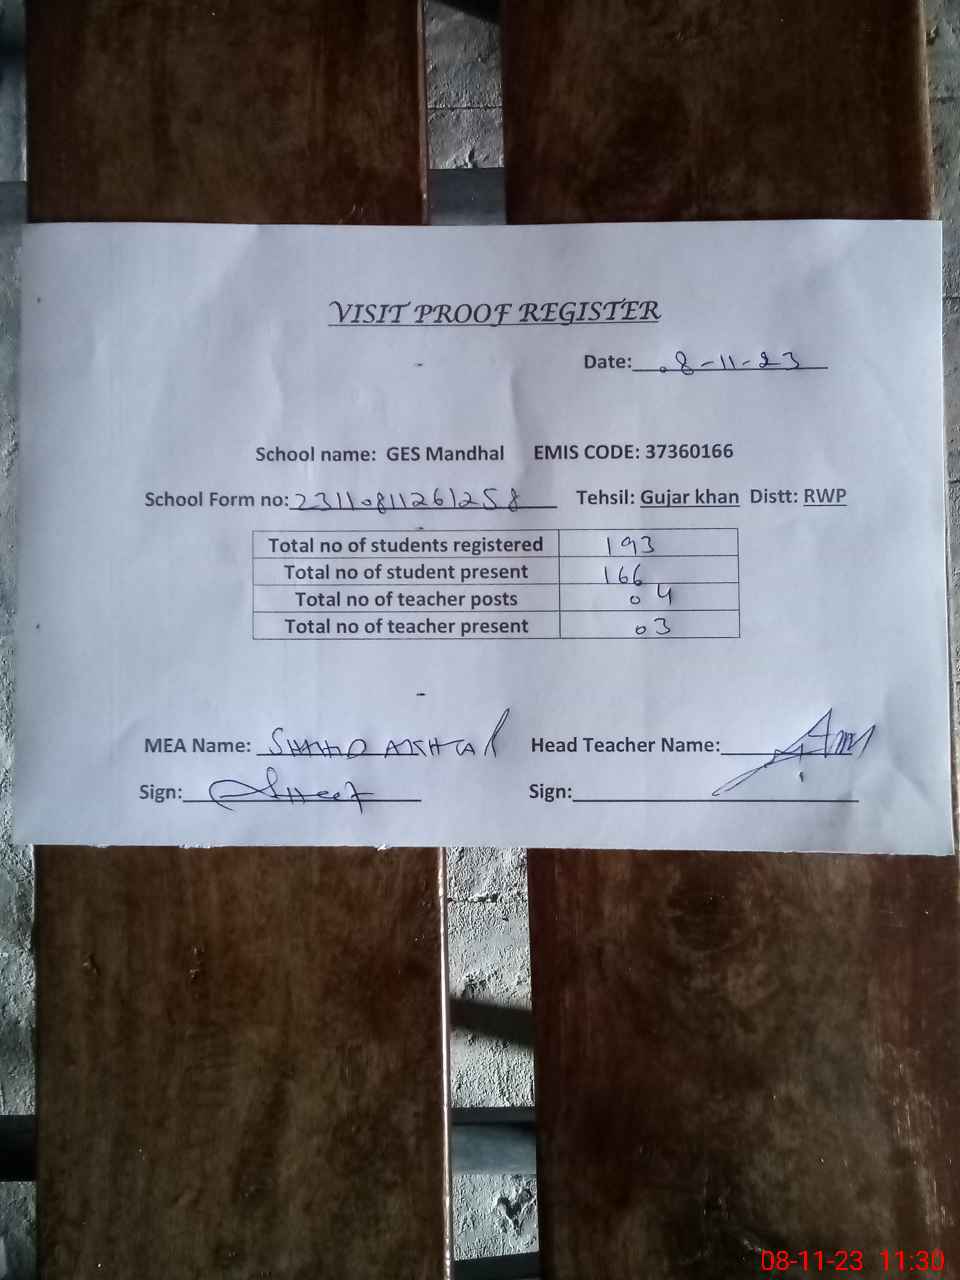 VISIT PROOF REGISTER
Date: 08-11-23
School name: GES Mandhal EMIS CODE: 37360166
School Form no: 23110811261258 Tehsil: Gujar khan Distt: RWP
Total no of students registered 193
Total no of student present 166
Total no of teacher posts 04
Total no of teacher present 03
MEA Name: Head Teacher Name:
Sign: Sign:
08-11-23 11:30